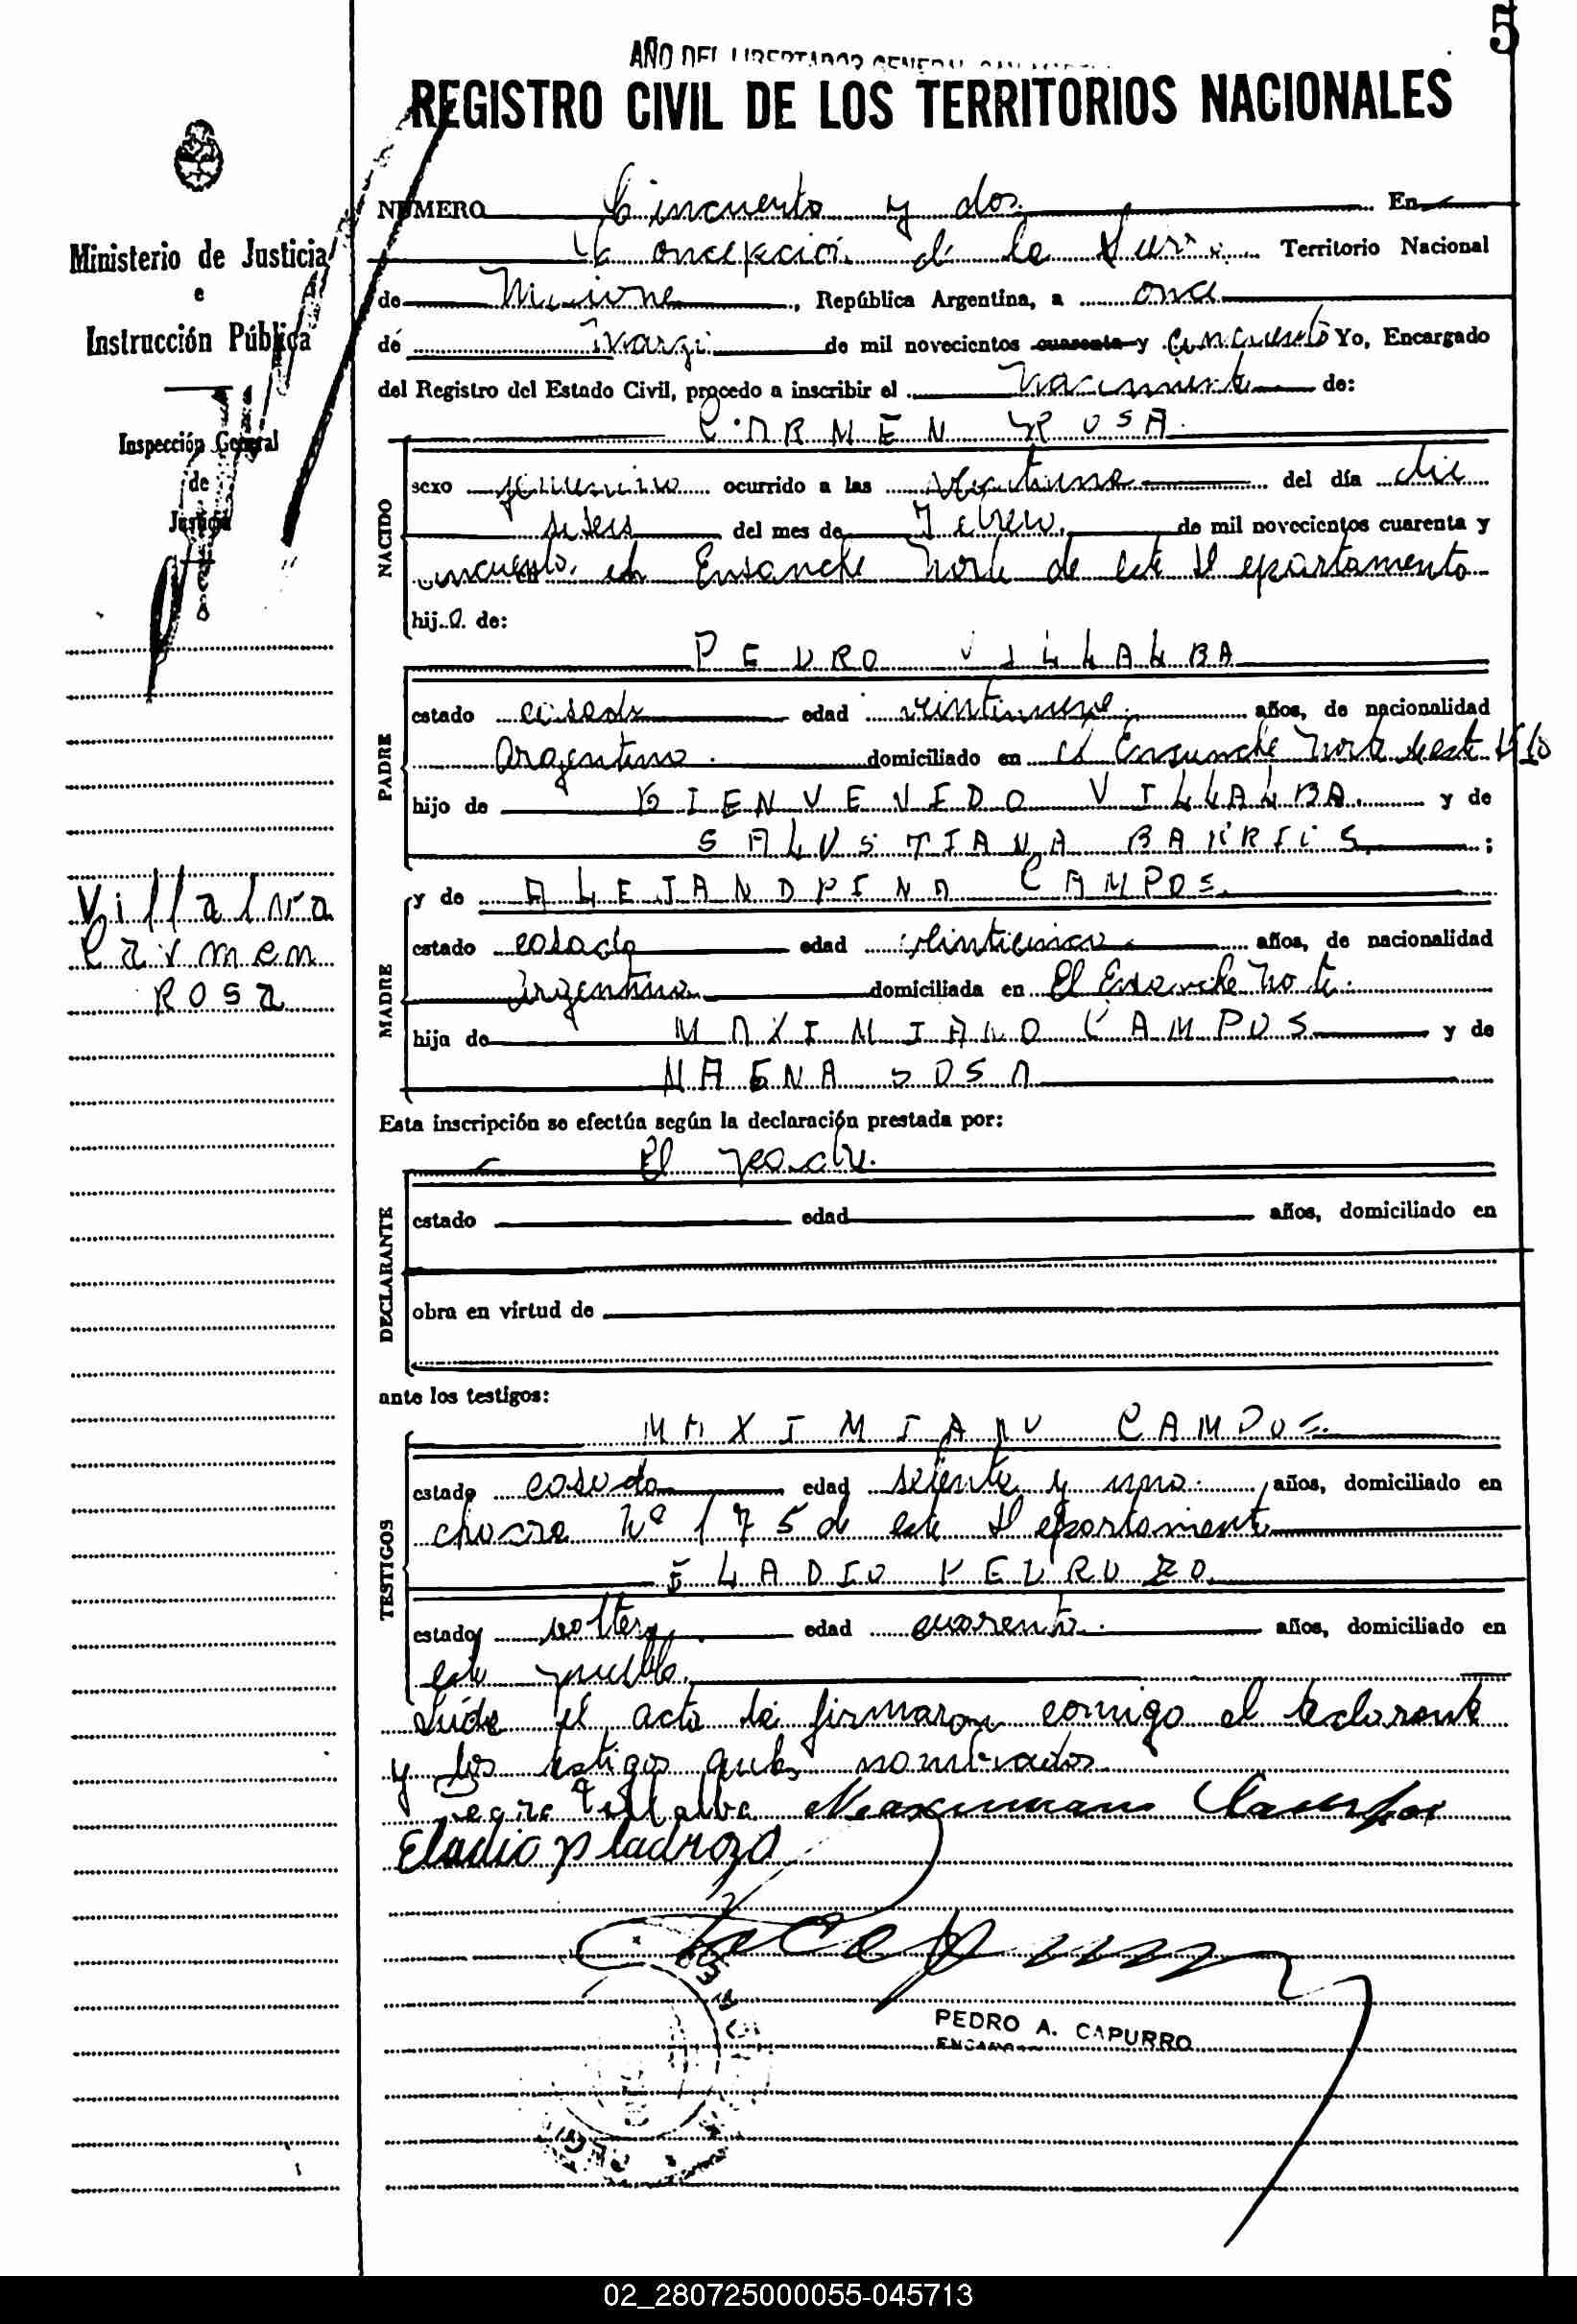 5
AÑO DEL LIBERTADOR GENERAL
REGISTRO CIVIL DE LOS TERRITORIOS NACIONALES
Ministerio de Justicia
e
Instrucción Pública
Inspección General
de
Justicia
Villalva
Carmen
Rosa
NUMERO Cincuenta y dos En
Concepción de la Territorio Nacional
de Misiones, República Argentina, a once
de Marzo de mil novecientos cuarenta y cincuenta Yo, Encargado
del Registro del Estado Civil, procedo a inscribir el Nacimiento de:
CARMEN ROSA
NACIDO
sexo femenino ocurrido a las veintiuna del día die
siseis del mes de Febrero de mil novecientos cuarenta y
cincuenta, en Ensanche Norte de este Departamento
hij.a. de:
PADRE
PEDRO VILLALBA
estado casado edad veintinueve años, de nacionalidad
Argentino domiciliado en el Ensanche Norte de este
hijo de BIENVENIDO VILLALBA y de
SALUSTIANA ;
MADRE
y de ALEJANDRINA CAMPOS
estado casada edad veinticinco años, de nacionalidad
Argentina domiciliada en El Ensanche Norte.
hija de MAXIMIANO CAMPOS y de
MAGNA SOSA
Esta inscripción se efectúa según la declaración prestada por:
DECLARANTE
El padre.
estado edad años, domiciliado en
obra en virtud de
ante los testigos:
TESTIGOS
MAXIMIANO CAMPOS
estado casado edad setenta y uno años, domiciliado en
chacra Nº 175 de este Departamento
ELADIO PEDROZO
estado soltero edad cuarenta años, domiciliado en
este pueblo.
Leída el acta la firmaron conmigo el declarante
y los testigos antes nombrados
Pedro Villalba Maximiano Campos
Eladio
PEDRO A. CAPURRO
02_280725000055-045713